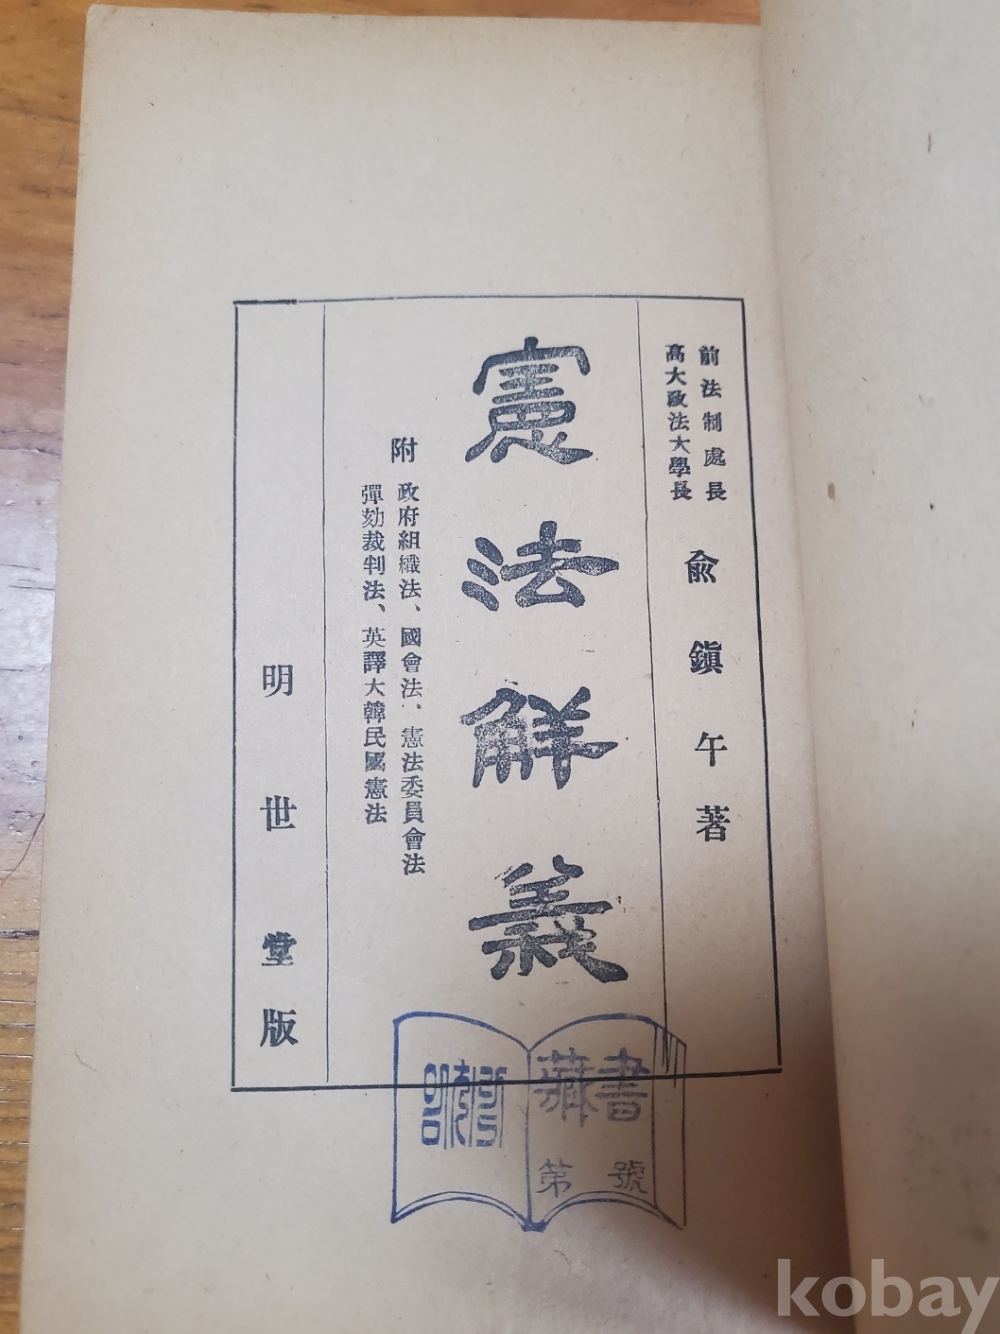 前法制處長
高大政法大學長
兪鎭午著
憲法解義
附
政府組織法、國會法、憲法委員會法
彈劾裁判法、英譯大韓民國憲法
明世堂版
藏書
第 號
kobay